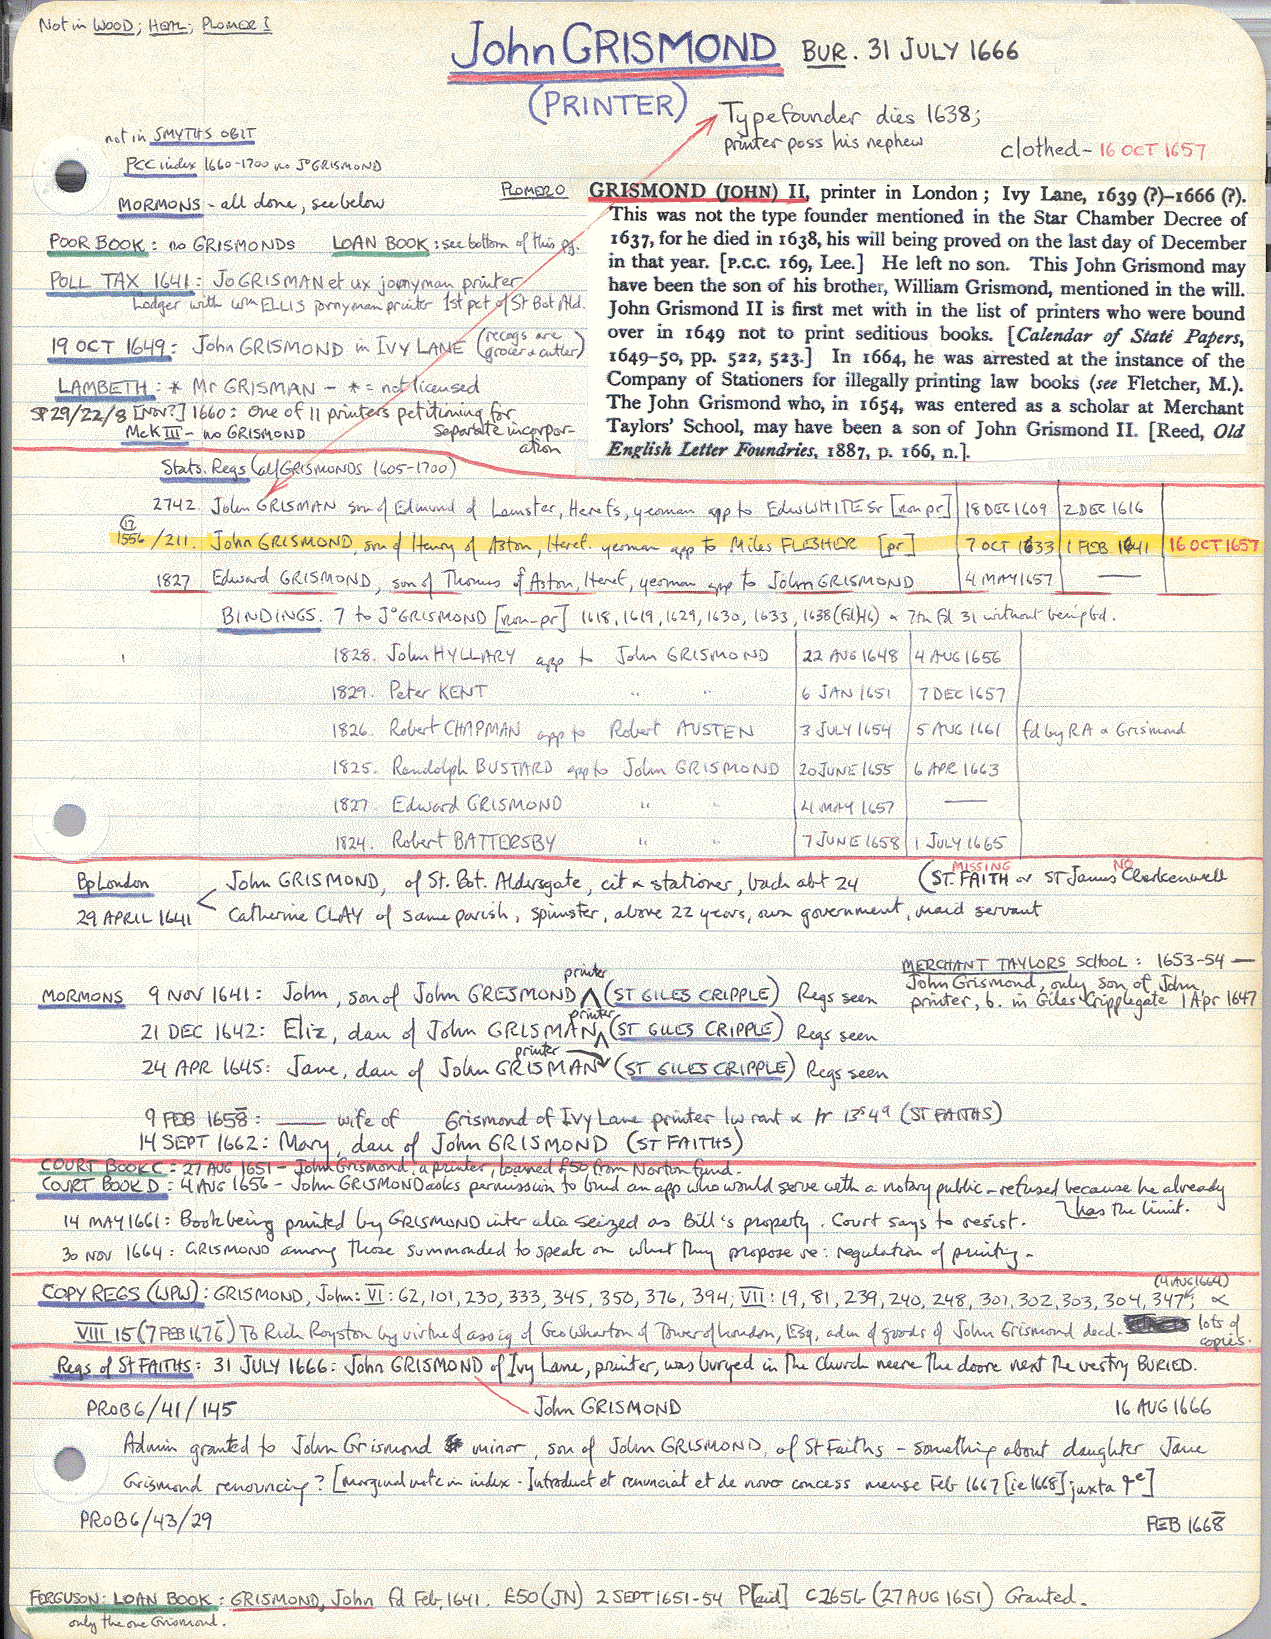 Not in WOOD; HEAL; PLOMER I
John GRISMOND BUR. 31 JULY 1666
(PRINTER)
Typefounder dies 1638;
printer poss his nephew
clothed - 16 OCT 1657
not in SMYTHS OBIT
PCC index 1660-1700 no Jo GRISMOND
MORMONS - all done, see below
POOR BOOK: no GRISMONDS LOAN BOOK: see bottom of this pg.
POLL TAX 1641: Jo GRISMAN et ux jornyman printer
Lodger with Wm ELLIS jornyman printer 1st pct of St Bot Ald.
19 OCT 1649: John GRISMOND in IVY LANE (recogs are grocer & cutler)
LAMBETH: * Mr GRISMAN - * = not licensed
SP 29/22/8 [NOV?] 1660: One of 11 printers petitioning for separate incorporation
McK III - no GRISMOND
PLOMER O
GRISMOND (JOHN) II, printer in London; Ivy Lane, 1639 (?)-1666 (?).
This was not the type founder mentioned in the Star Chamber Decree of
1637, for he died in 1638, his will being proved on the last day of December
in that year. [P.C.C. 169, Lee.] He left no son. This John Grismond may
have been the son of his brother, William Grismond, mentioned in the will.
John Grismond II is first met with in the list of printers who were bound
over in 1649 not to print seditious books. [Calendar of State Papers,
1649-50, pp. 522, 523.] In 1664, he was arrested at the instance of the
Company of Stationers for illegally printing law books (see Fletcher, M.).
The John Grismond who, in 1654, was entered as a scholar at Merchant
Taylors' School, may have been a son of John Grismond II. [Reed, Old
English Letter Foundries, 1887, p. 166, n.].
Stats. Regs (all GRISMONDS 1605-1700)
2742. John GRISMAN son of Edmund of Lemster, Herefs, yeoman app to Edw WHITE Sr [non pr] 18 DEC 1609 2 DEC 1616
(12) 1556/211. John GRISMOND, son of Henry of Aston, Heref. yeoman app to Miles FLESHER [pr] 7 OCT 1633 1 FEB 1641 16 OCT 1657
1827 Edward GRISMOND, son of Thomas of Aston, Heref, yeoman app to John GRISMOND 4 MAY 1657 —
BINDINGS. 7 to Jo GRISMOND [non-pr] 1618, 1619, 1629, 1630, 1633, 1638 (fd 46) & 7th fd 31 without being bd.
1828. John HYLLARY app to John GRISMOND 22 AUG 1648 4 AUG 1656
1829. Peter KENT " " 6 JAN 1651 7 DEC 1657
1826. Robert CHAPMAN app to Robert AUSTEN 3 JULY 1654 5 AUG 1661 fd by RA & Grismond
1825. Randolph BUSTARD app to John GRISMOND 20 JUNE 1655 6 APR 1663
1827. Edward GRISMOND " " 4 MAY 1657 —
1824. Robert BATTERSBY " " 7 JUNE 1658 1 JULY 1665
Bp London John GRISMOND, of St. Bot. Aldersgate, cit & stationer, bach abt 24 (ST. FAITH or ST James Clerkenwell
MISSING NO
29 APRIL 1641 Catherine CLAY of same parish, spinster, above 22 years, own government, maid servant
MERCHANT TAYLORS SCHOOL: 1653-54 —
John Grismond, only son of John,
printer, b. in Giles Cripplegate 1 Apr 1647
MORMONS 9 NOV 1641: John, son of John GRESMOND printer (ST GILES CRIPPLE) Regs seen
21 DEC 1642: Eliz, dau of John GRISMAN printer (ST GILES CRIPPLE) Regs seen
24 APR 1645: Jane, dau of John GRISMAN printer (ST GILES CRIPPLE) Regs seen
9 FEB 1658: — wife of Grismond of Ivy Lane printer 13s 4d (ST FAITHS)
14 SEPT 1662: Mary, dau of John GRISMOND (ST FAITHS)
COURT BOOK C: 27 AUG 1651 - John Grismond, a printer, loaned £50 from Norton fund.
COURT BOOK D: 4 AUG 1656 - John GRISMOND asks permission to bind an app who would serve with a notary public - refused because he already has the limit.
14 MAY 1661: Book being printed by GRISMOND inter alia seized as Bill's property. Court says to resist.
30 NOV 1664: GRISMOND among those summonded to speak on what they propose re: regulation of printing.
COPY REGS (WPW): GRISMOND, John: VI: 62, 101, 230, 333, 345, 350, 376, 394; VII: 19, 81, 239, 240, 248, 301, 302, 303, 304, 347; &
(4 AUG 1664)
VIII 15 (7 FEB 1676) To Rich Royston by virtue of assig of Geo Wharton of Tower of London, Esq, adm of goods of John Grismond decd. lots of copies.
Regs of St FAITHS: 31 JULY 1666: John GRISMOND of Ivy Lane, printer, was buryed in the church neere the doore next the vestry BURIED.
PROB 6/41/145 John GRISMOND 16 AUG 1666
Admin granted to John Grismond minor, son of John GRISMOND, of St Faiths - something about daughter Jane
Grismond renouncing? [marginal note in index - Introduct et renunciat et de novo concess mense Feb 1667 [ie 1668] juxta
PROB 6/43/29 FEB 1668
FERGUSON: LOAN BOOK: GRISMOND, John fd Feb, 1641. £50 (JN) 2 SEPT 1651-54 P[aid] C265b (27 AUG 1651) Granted.
only the one Grismond.